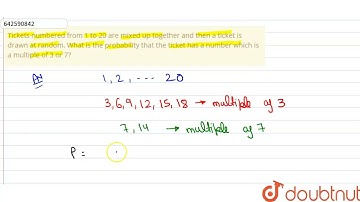 642590842
Tickets numbered from 1 to 20 are mixed up together and then a ticket is
drawn at random. What is the probability that the ticket has a number which is
a multiple of 3 or 7?
1, 2, ... 20
3,6,9,12,15,18 → multiple of 3
7,14 → multiple of 7
P =
doubtnut